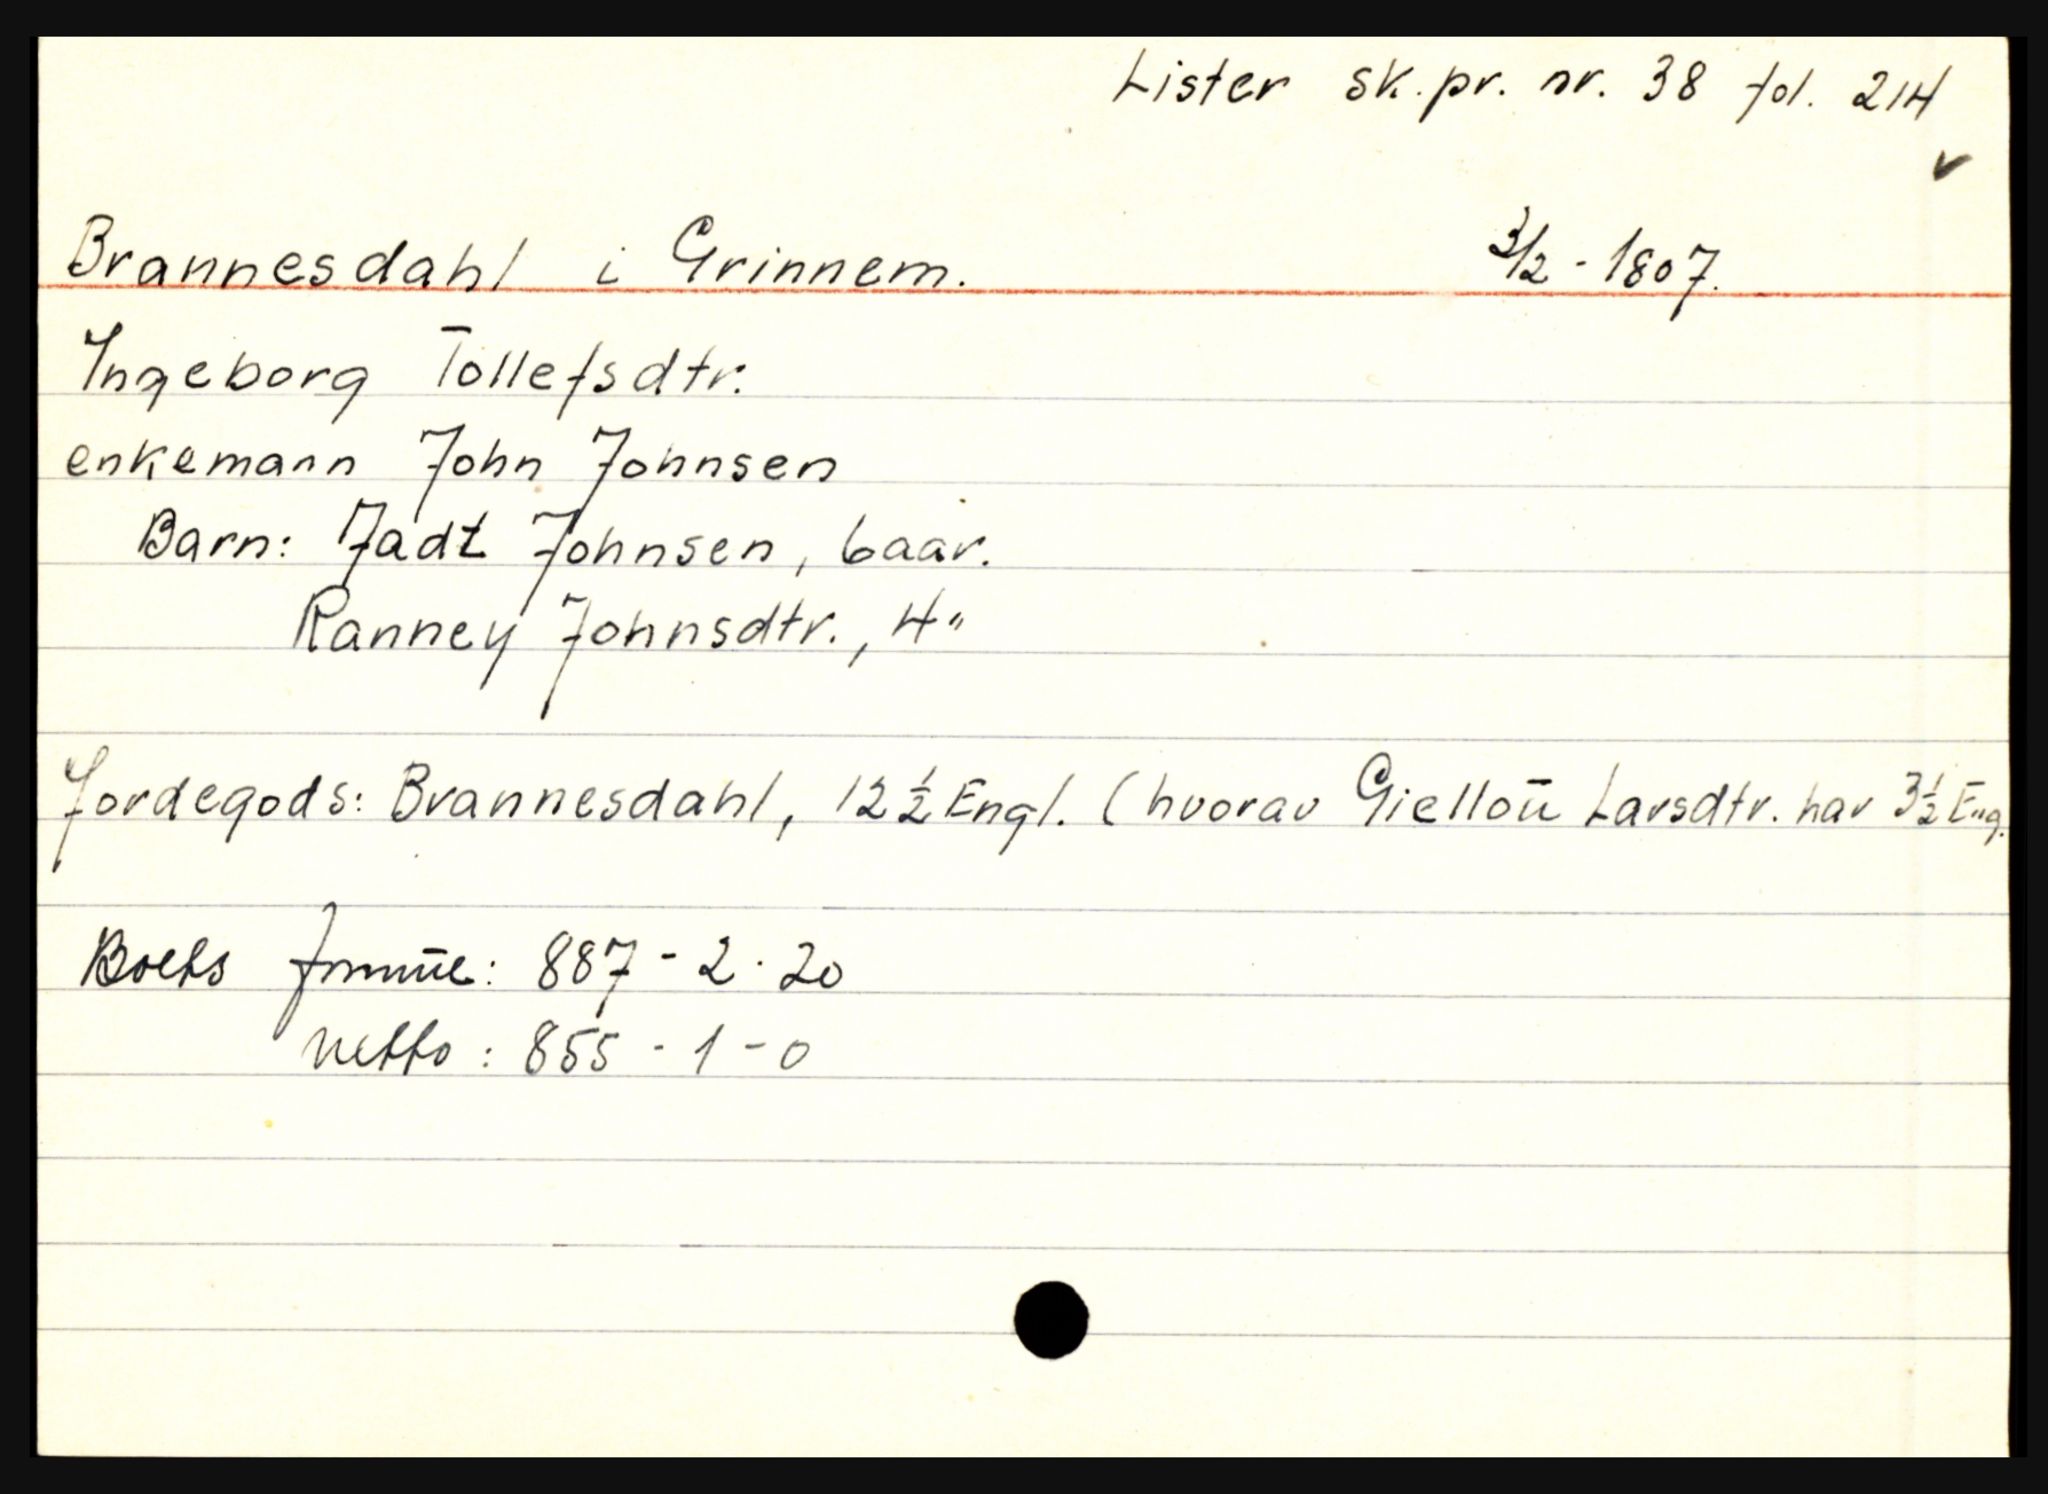 Lister sk.pr. nr. 38 fol. 214
Brannesdahl i Grinnem. 3/2 - 1807.
Ingeborg Tollefsdtr.
enkemann John Johnsen
Barn: Jadt Johnsen, 6 aar.
Ranney Johnsdtr., 4 "
Jordegods: Brannesdahl, 12 ½ Engl. (hvorav Gielloū Larsdtr. har 3½ Eng.
Boets : 887 - 2 - 20
netto : 855 - 1 - 0